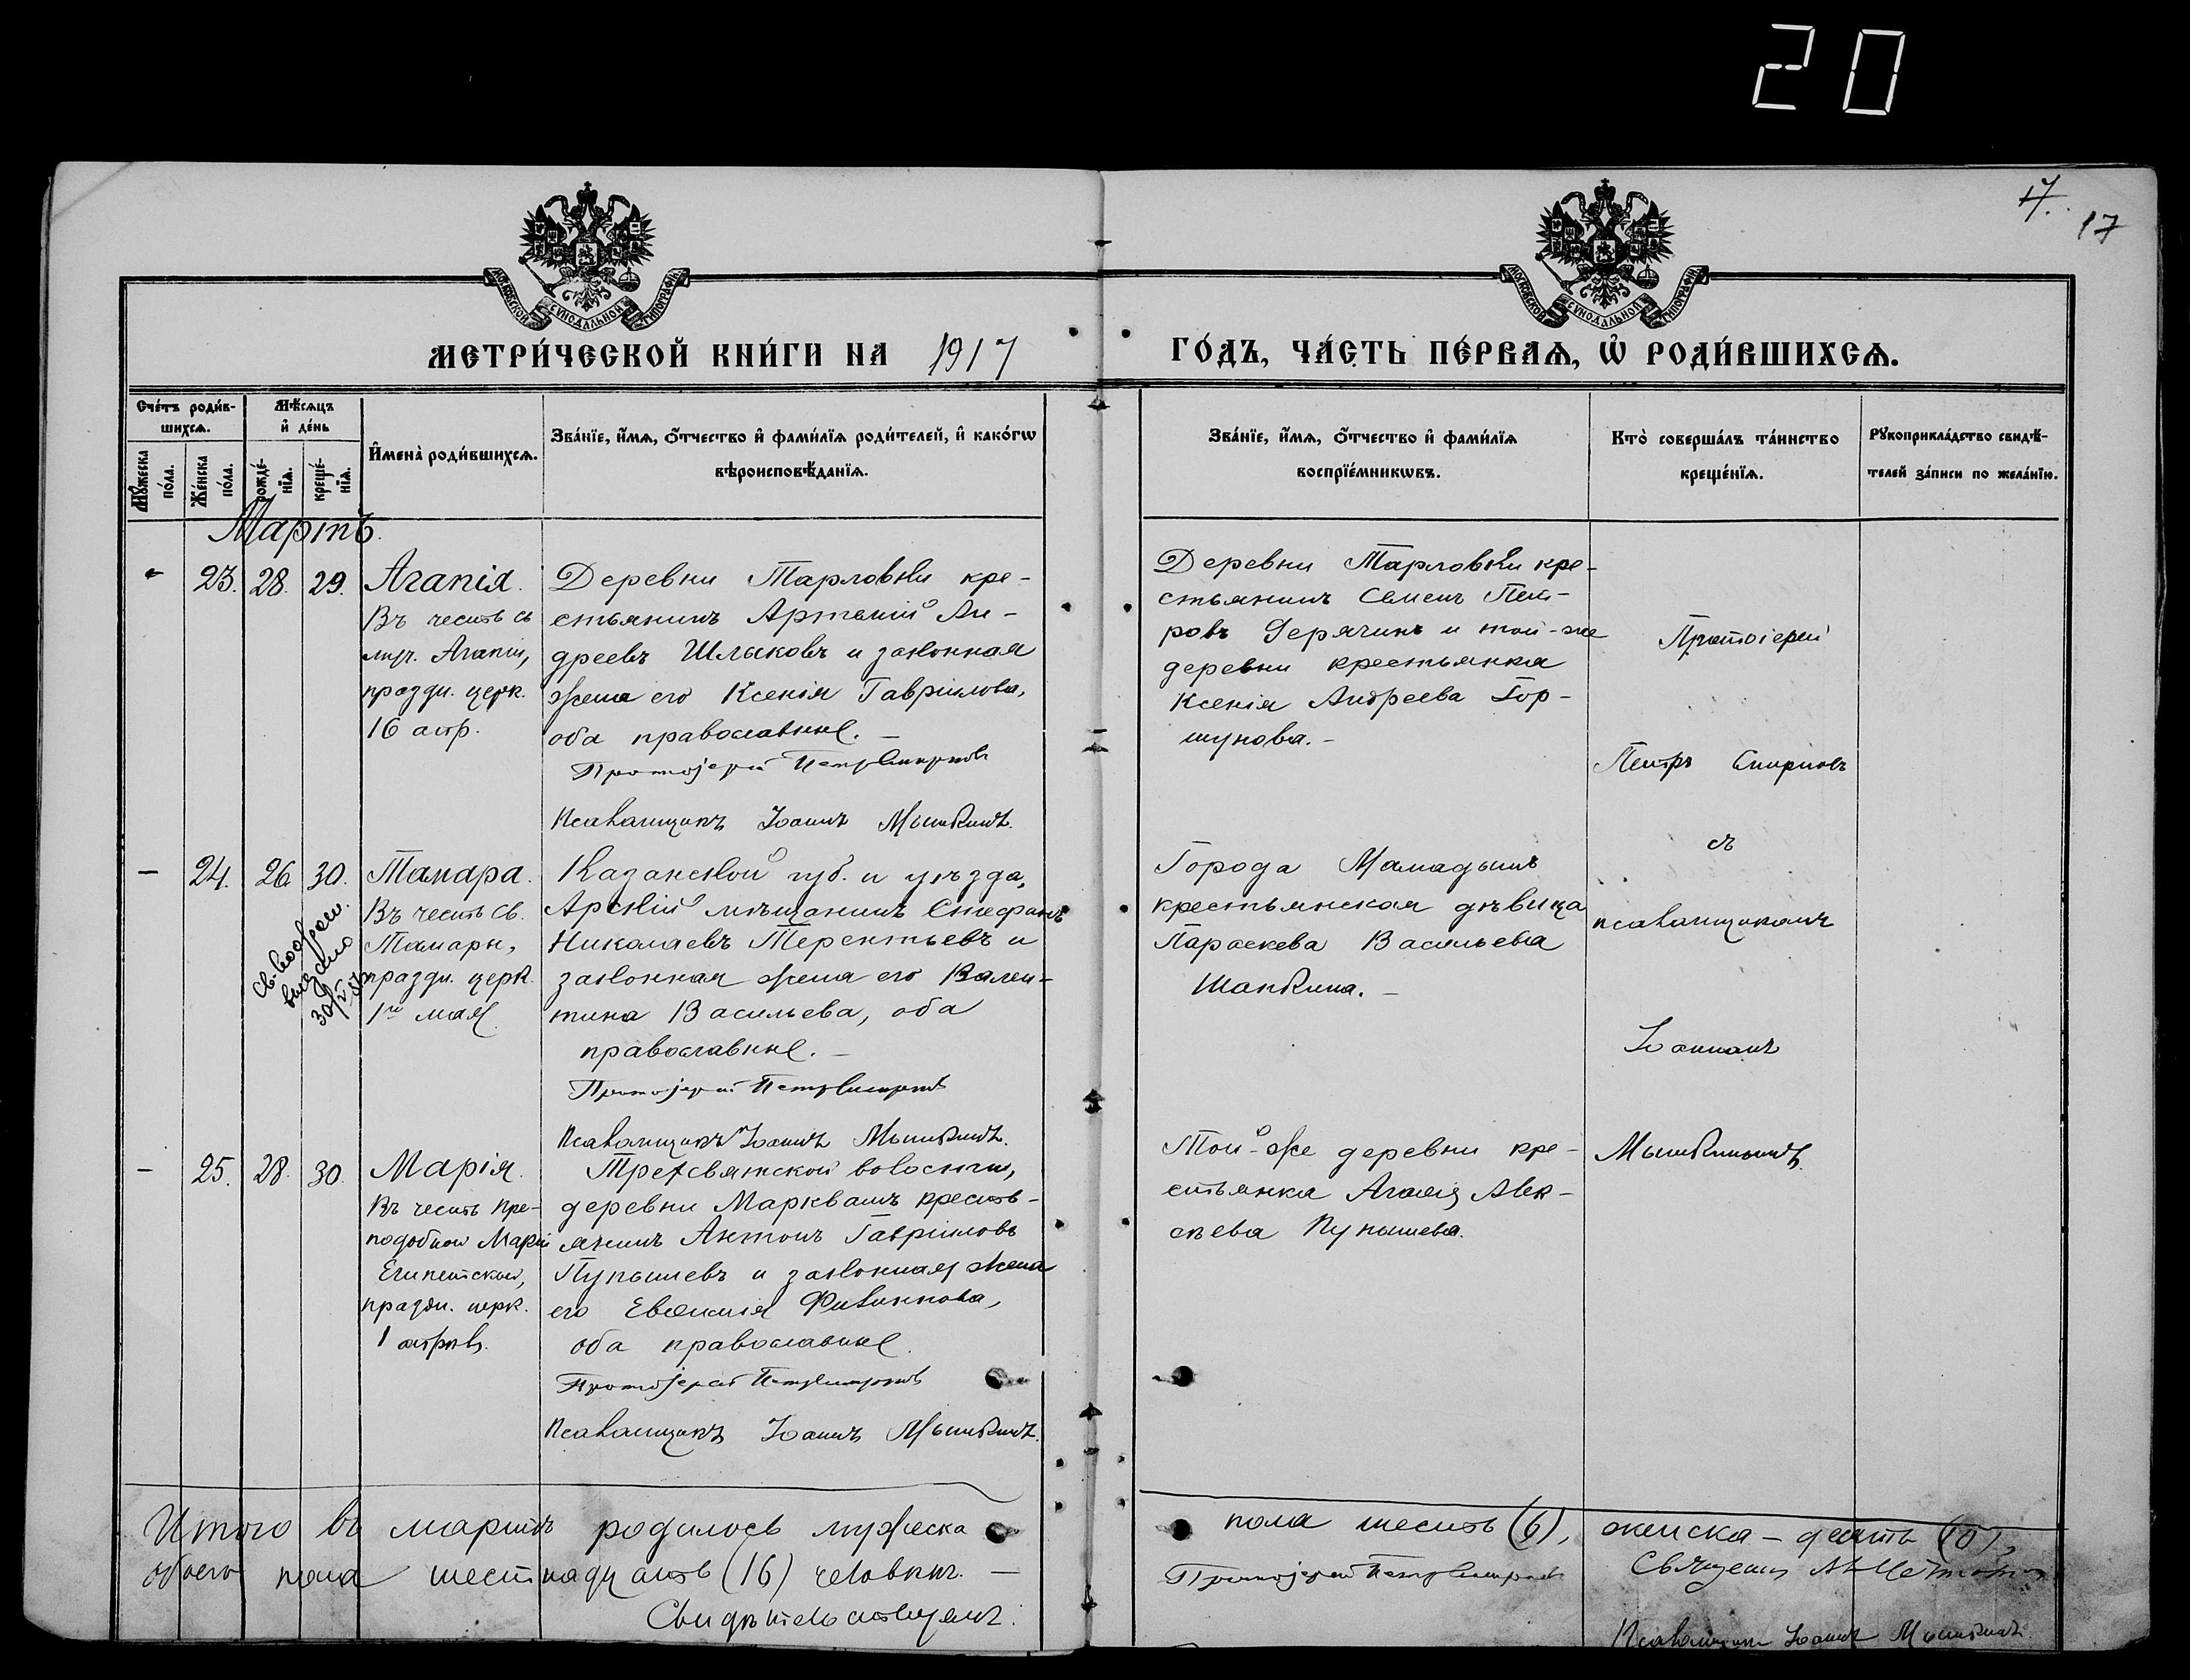 20
17.
17
МОСКОВСКОЙ СѴНОДАЛЬНОЙ ТИПОГРАФІИ
МОСКОВСКОЙ СѴНОДАЛЬНОЙ ТИПОГРАФІИ
МЕТРИ́ЧЕСКОЙ КНИ́ГИ НА 1917
ГО́ДЪ, ЧА́СТЬ ПЕ́РВАѦ, Ѽ РОДИ́ВШИХСѦ.
Сче́тъ роди́в-
шихсѧ.
Мꙋ́жеска
по́ла.
Же́нска
по́ла.
Мѣ́сѧцъ
и҆ де́нь
рожде́-
нїѧ.
креще́-
нїѧ.
И҆мена̀ роди́вшихсѧ.
Зва́нїе, и҆́мѧ, ѻ҆́тчество и҆ фами́лїѧ роди́телей, и҆ како́гѡ
вѣроисповѣ́данїѧ.
Зва́нїе, и҆́мѧ, ѻ҆́тчество и҆ фами́лїѧ
воспрїе́мникѡвъ.
Кто̀ соверша́лъ та́инство
креще́нїѧ.
Рꙋкоприкла́дство свидѣ́-
телей за́писи по жела́нїю.
Мартъ.
- 23. 28. 29. Агапія.
Въ честь св
мр. Агапіи,
праздн. церк.
16 апр.
Деревни Тарловки кре-
стьянинъ Артемій Ан-
дреевъ Шлыковъ и законная
жена его Ксенія Гавріилова,
оба православные. -
Протоіерей Петръ Смирновъ
Псаломщикъ Іоаннъ Мышкинъ.
Деревни Тарловки кре-
стьянинъ Семенъ Пет-
ровъ Дерячинъ и той-же
деревни крестьянка
Ксенія Андреева Гор-
шунова. -
Протоіерей
Петръ Смирновъ
съ
псаломщикомъ
Іоанномъ
Мышкинымъ.
- 24. 26 30. Тамара.
Въ честь Св.
Тамары,
праздн. церк.
1го мая.
выдано
Казанской губ. и уѣзда,
Арскій мѣщанинъ Стефанъ
Николаевъ Терентьевъ и
законная жена его Вален-
тина Васильева, оба
православные. -
Протоіерей Петръ Смирновъ
Псаломщикъ Іоаннъ Мышкинъ.
Города Мамадышъ
крестьянская дѣвица
Параскева Васильева
Шапкина. -
- 25. 28. 30. Марія.
Въ честь Пре-
подобной Маріи
Египетской,
праздн. церк.
1 апрѣля.
Трехсвятской волости,
деревни Марквашъ кресть-
янинъ Антонъ Гавріиловъ
Пупышевъ и законная жена
его Евѳимія Филиппова,
оба православные.
Протоіерей Петръ Смирновъ
Псаломщикъ Іоаннъ Мышкинъ.
Той-же деревни кре-
стьянка Агаѳія Алек-
сѣева Пупышева.
Итого въ мартѣ родилось мужеска
пола шесть (6), женска - десять (10),
обоего пола шестнадцать (16) человѣкъ. -
Свидѣтельствуемъ:
Протоіерей Петръ Смирновъ
Священ.
Псаломщикъ Іоаннъ Мышкинъ.